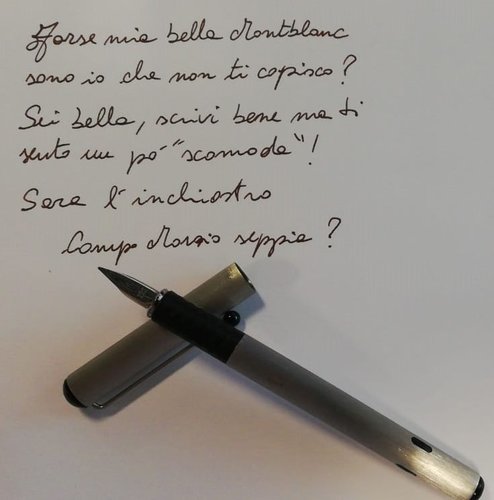 Forse mia bella Montblanc
sono io che non ti capisco?
Sei bella, scrivi bene ma ti
sento un pó "scomoda"!
Sara l'inchiostro
Campo Marzio seppia?